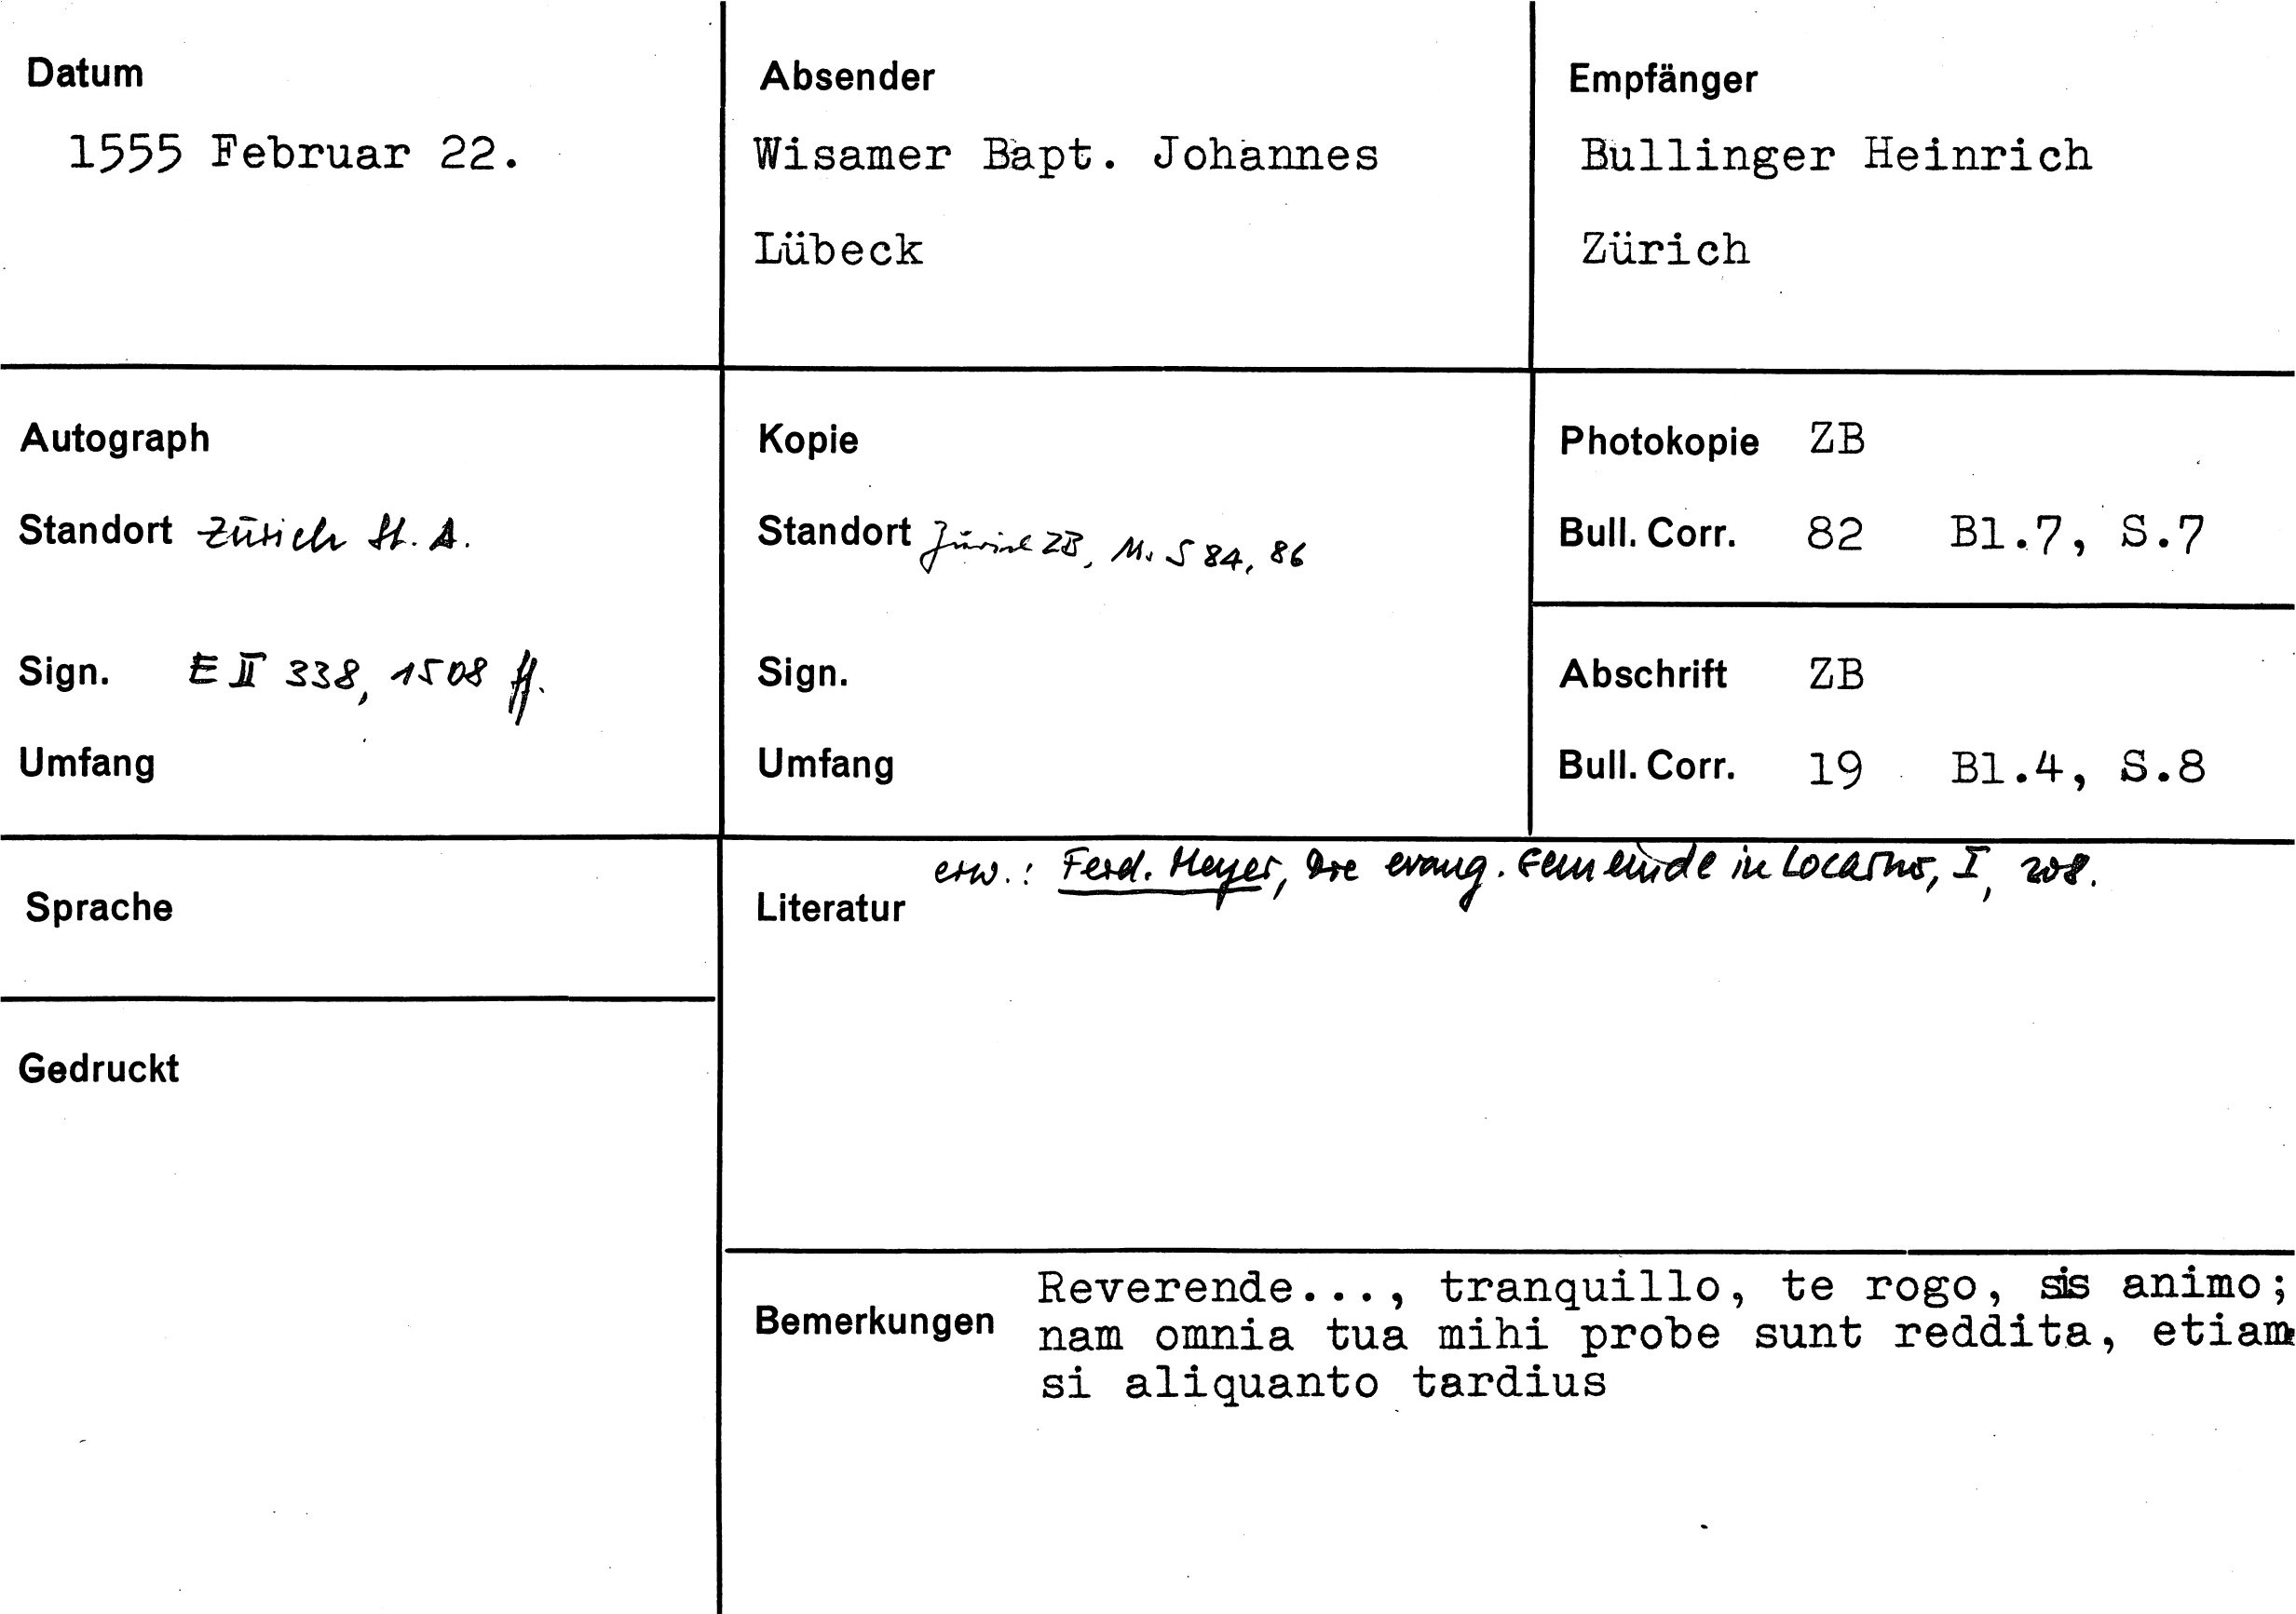 Datum
1555 Februar 22.
Absender
Wisamer Bapt. Johannes
Lübeck
Empfänger
Bullinger Heinrich
Zürich
Autograph
Standort Zürich St. A.
Sign. E II 338, 1508 ff.
Umfang
Kopie
Standort Zürich ZB, Ms S 84, 86
Sign.
Umfang
Photokopie ZB
Bull. Corr. 82 Bl.7, S.7
Abschrift ZB
Bull. Corr. 19 Bl.4, S.8
Sprache
Gedruckt
Literatur erw.: Ferd. Meyer, Die evang. Gemeinde in Locarno, I, 208.
Bemerkungen
Reverende..., tranquillo, te rogo, sis animo;
nam omnia tua mihi probe sunt reddita, etiam
si aliquanto tardius